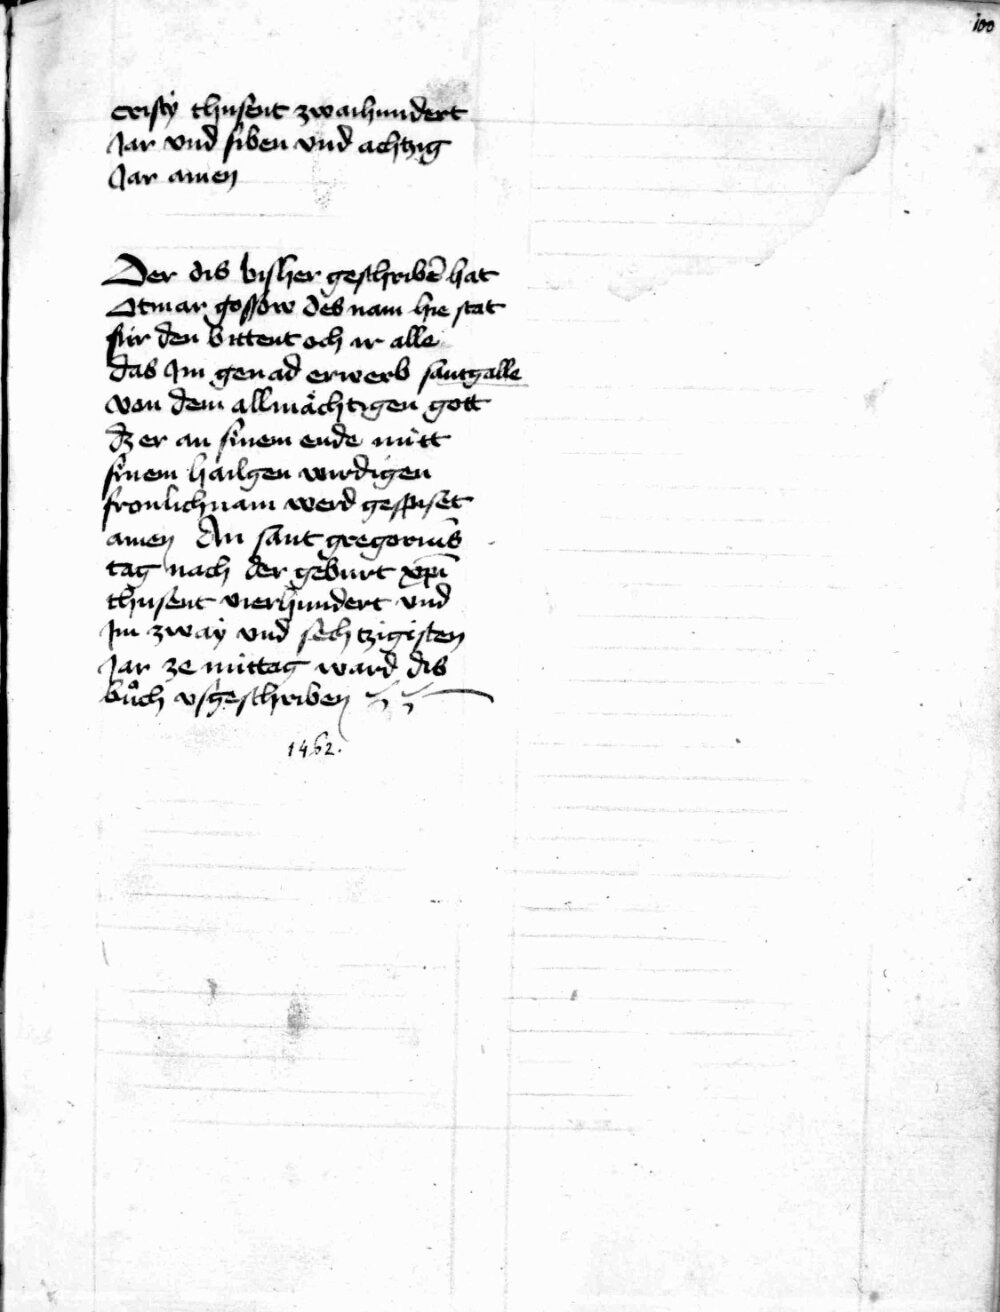 100
cristÿ thusent zwaihundert
Jar vnd siben vnd achtzig
Jar amen
Der dis bisher geschribē hat
Otmar gossow des nam hie stat
für den bittent och ir alle
das Jm genad erwerb santgalle
von dem allmächtigen gott
dz er an sinem ende mitt
sinem hailgen wirdigen
fronlichnam werd gespiset
amen An sant gregorius
tag nach der geburt xp̄i
thusent vierhundert vnd
Jm zwaÿ vnd sechtzigisten
Jar ze mittag ward dis
bůch vsgeschriben
1462.